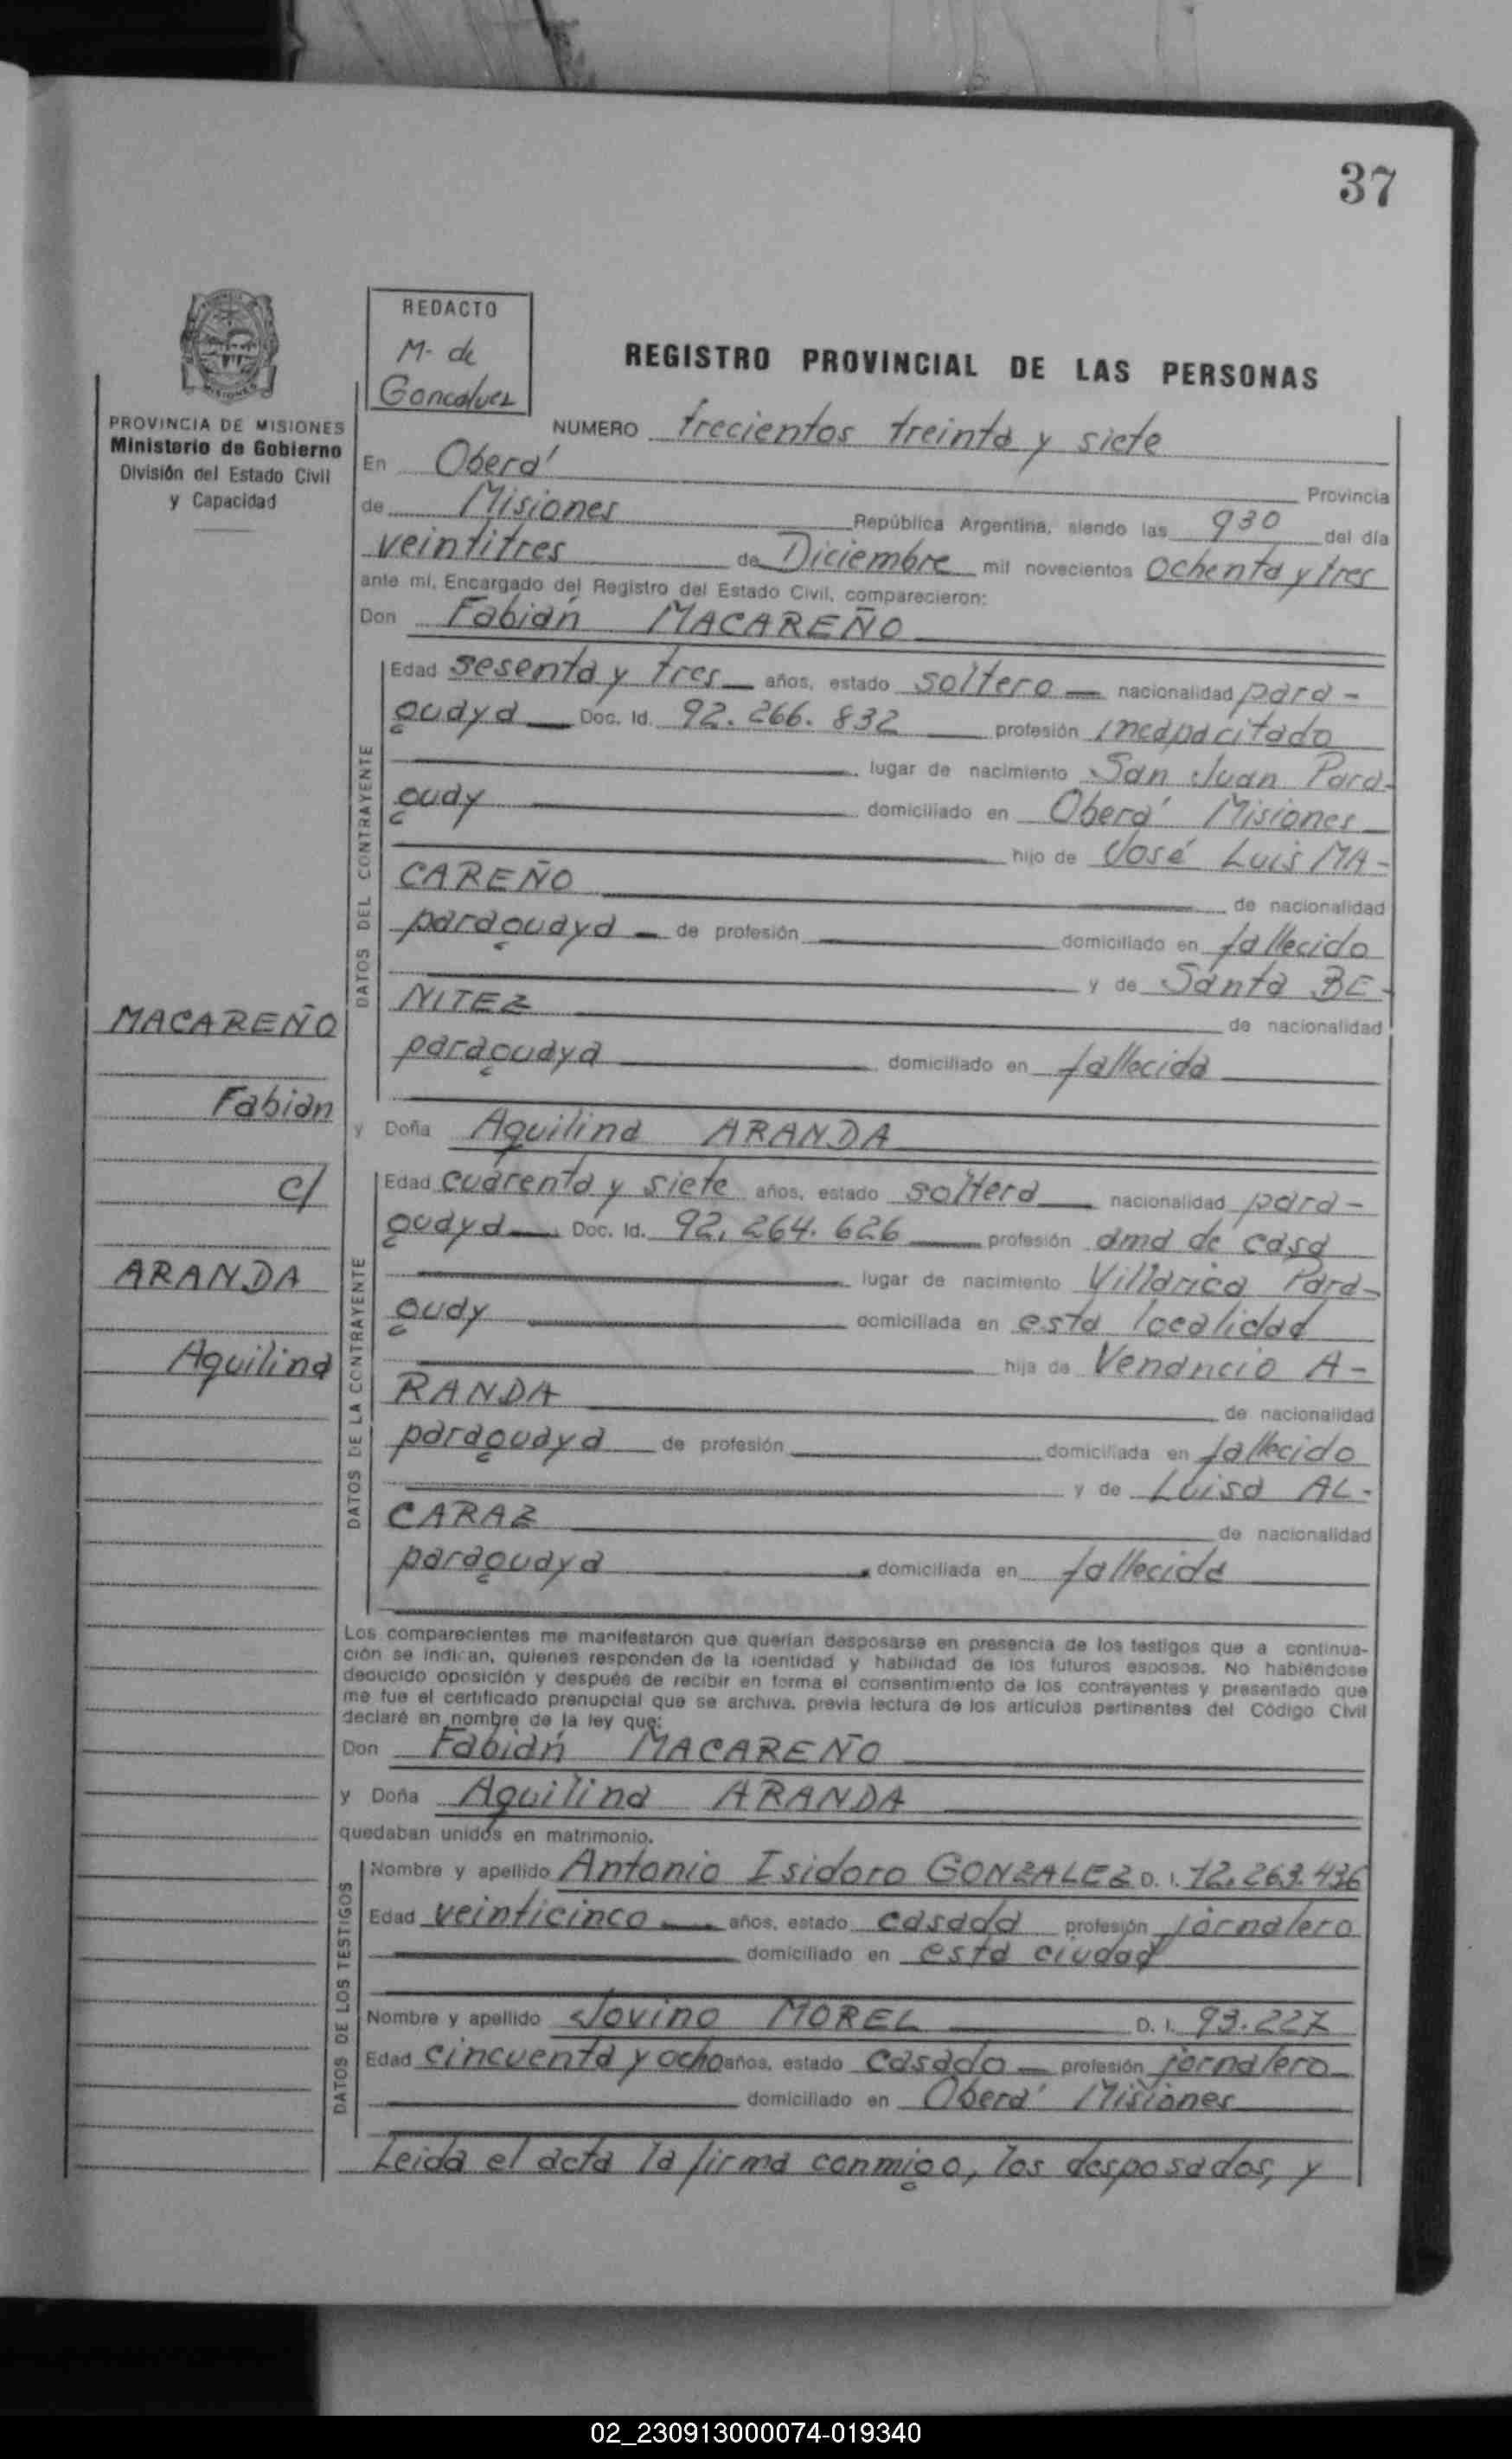 37
REDACTO
M. de
Goncalvez
REGISTRO PROVINCIAL DE LAS PERSONAS
PROVINCIA DE MISIONES
Ministerio de Gobierno
División del Estado Civil
y Capacidad
NUMERO trecientos treinta y siete
En Oberá Provincia
de Misiones República Argentina, siendo las 930 del día
veintitres de Diciembre mil novecientos ochenta y tres
ante mí, Encargado del Registro del Estado Civil, comparecieron:
Don Fabián MACAREÑO
DATOS DEL CONTRAYENTE
Edad sesenta y tres años, estado soltero nacionalidad para-
guaya Doc. Id. 92.266.832 profesión incapacitado
lugar de nacimiento San Juan Para-
guay domiciliado en Oberá Misiones
hijo de José Luis MA-
CAREÑO de nacionalidad
paraguaya de profesión domiciliado en fallecido
y de Santa BE-
NITEZ de nacionalidad
paraguaya domiciliado en fallecida
MACAREÑO
Fabian
c/
ARANDA
Aquilina
y Doña Aquilina ARANDA
DATOS DE LA CONTRAYENTE
Edad cuarenta y siete años, estado soltera nacionalidad para-
guaya Doc. Id. 92.264.626 profesión ama de casa
lugar de nacimiento Villarica Para-
guay domiciliada en esta localidad
hija de Venancio A-
RANDA de nacionalidad
paraguaya de profesión domiciliada en fallecido
y de Luisa AL-
CARAZ de nacionalidad
paraguaya domiciliada en fallecida
Los comparecientes me manifestaron que querían desposarse en presencia de los testigos que a continua-
ción se indican, quienes responden de la identidad y habilidad de los futuros esposos. No habiéndose
deducido oposición y después de recibir en forma el consentimiento de los contrayentes y presentado que
me fue el certificado prenupcial que se archiva, previa lectura de los artículos pertinentes del Código Civil
declaré en nombre de la ley que:
Don Fabián MACAREÑO
y Doña Aquilina ARANDA
quedaban unidos en matrimonio.
DATOS DE LOS TESTIGOS
Nombre y apellido Antonio Isidoro GONZALEZ D. I. 12.263.436
Edad veinticinco años, estado casada profesión jornalero
domiciliado en esta ciudad
Nombre y apellido Jovino MOREL D. I. 93.227
Edad cincuenta y ocho años, estado casado profesión jornalero
domiciliado en Oberá Misiones
Leida el acta la firma conmigo, los desposados, y
02_230913000074-019340